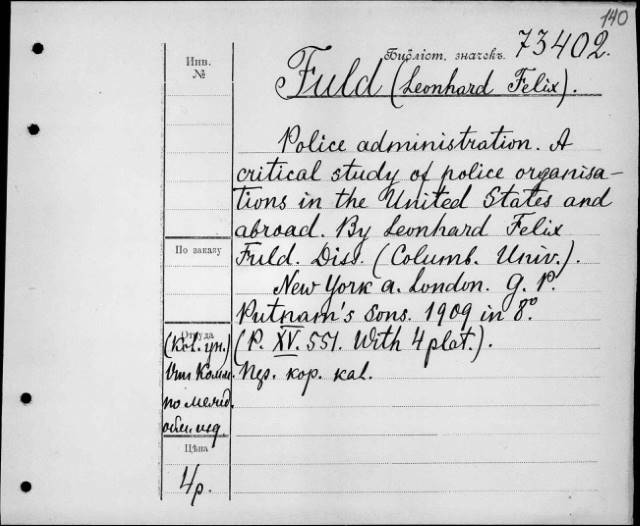 140
Библіот. значекъ. 73402.
Инв.
№
Fuld (Leonhard Felix).
Police administration. A
critical study of police organisa-
tions in the United States and
abroad. By Leonhard Felix
По заказу
Fuld. Diss. (Columb. Univ.).
New York a. London. G. P.
Putnam's sons. 1909 in 8°.
Откуда
(P. XV. 551. With 4 plat.).
(Kol. ун.)
кор. kal.
по
Цѣна
4р.